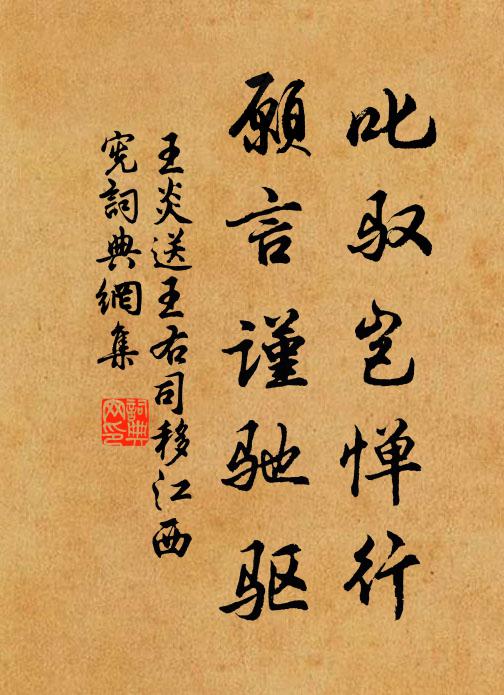 叱驭岂惮行
愿言谨驰驱
王炎送王右司移江西
宪词典網集
詞典網印